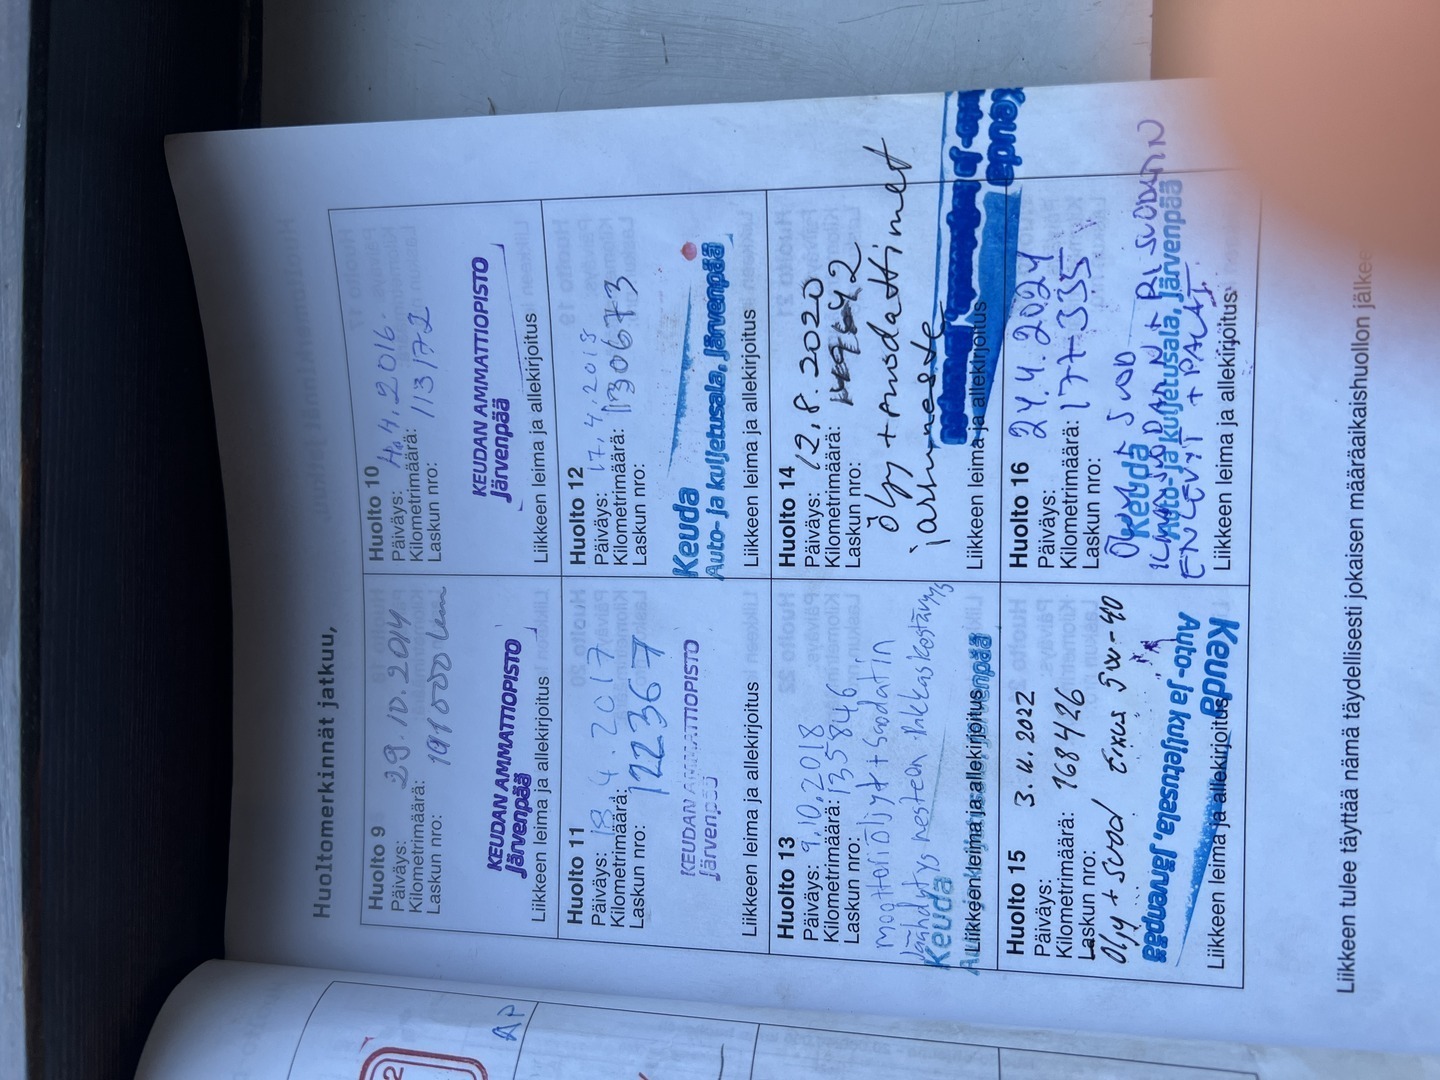 Huoltomerkinnät jatkuu,
Huolto 9
Päiväys: 29.10.2014
Kilometrimäärä:
Laskun nro:
KEUDAN AMMATTIOPISTO
Järvenpää
Liikkeen leima ja allekirjoitus
Huolto 10
Päiväys: 4.2016.
Kilometrimäärä: 113172
Laskun nro:
KEUDAN AMMATTIOPISTO
Järvenpää
Liikkeen leima ja allekirjoitus
Huolto 11
Päiväys: 18.4.2017
Kilometrimäärä: 122367
Laskun nro:
KEUDAN AMMATTIOPISTO
Järvenpää
Liikkeen leima ja allekirjoitus
Huolto 12
Päiväys: 17.4.2018
Kilometrimäärä: 130673
Laskun nro:
Keuda
Auto- ja kuljetusala, Järvenpää
Liikkeen leima ja allekirjoitus
Huolto 13
Päiväys: 9.10.2018
Kilometrimäärä: 135846
Laskun nro:
moottoriöljyt + suodatin
jäähdytysnesteen pakkaskestävyys
Keuda
Liikkeen leima ja allekirjoitus
Huolto 14
Päiväys: 12.8.2020
Kilometrimäärä:
Laskun nro:
öljy + suodattimet
jarruneste
Liikkeen leima ja allekirjoitus
Huolto 15
Päiväys: 3.11.2022
Kilometrimäärä: 168426
Laskun nro:
Öljy + suod 5W-40
Keuda
Auto- ja kuljetusala, Järvenpää
Liikkeen leima ja allekirjoitus
Huolto 16
Päiväys: 24.4.2024
Kilometrimäärä: 177335
Laskun nro:
SUOD
ILMASUODATIN + RI SUODATIN
+ PALAT
Keuda
Auto- ja kuljetusala, Järvenpää
Liikkeen leima ja allekirjoitus:
Liikkeen tulee täyttää nämä täydellisesti jokaisen määräaikaishuollon jälkee
AP
2